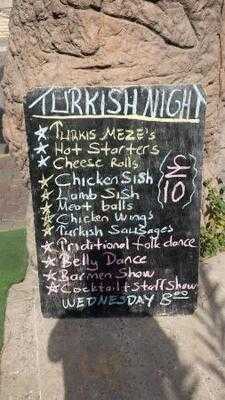 TURKISH NIGHT
TURKIS MEZE's
Hot Starters
Cheese Rolls
Chicken Sish
Lamb Sish
Meat balls
Chicken Wings
Turkish Sausages
£10
Traditional folk dance
Belly Dance
Barmen Show
Cocktail + Staff Show
WEDNESDAY 8:00